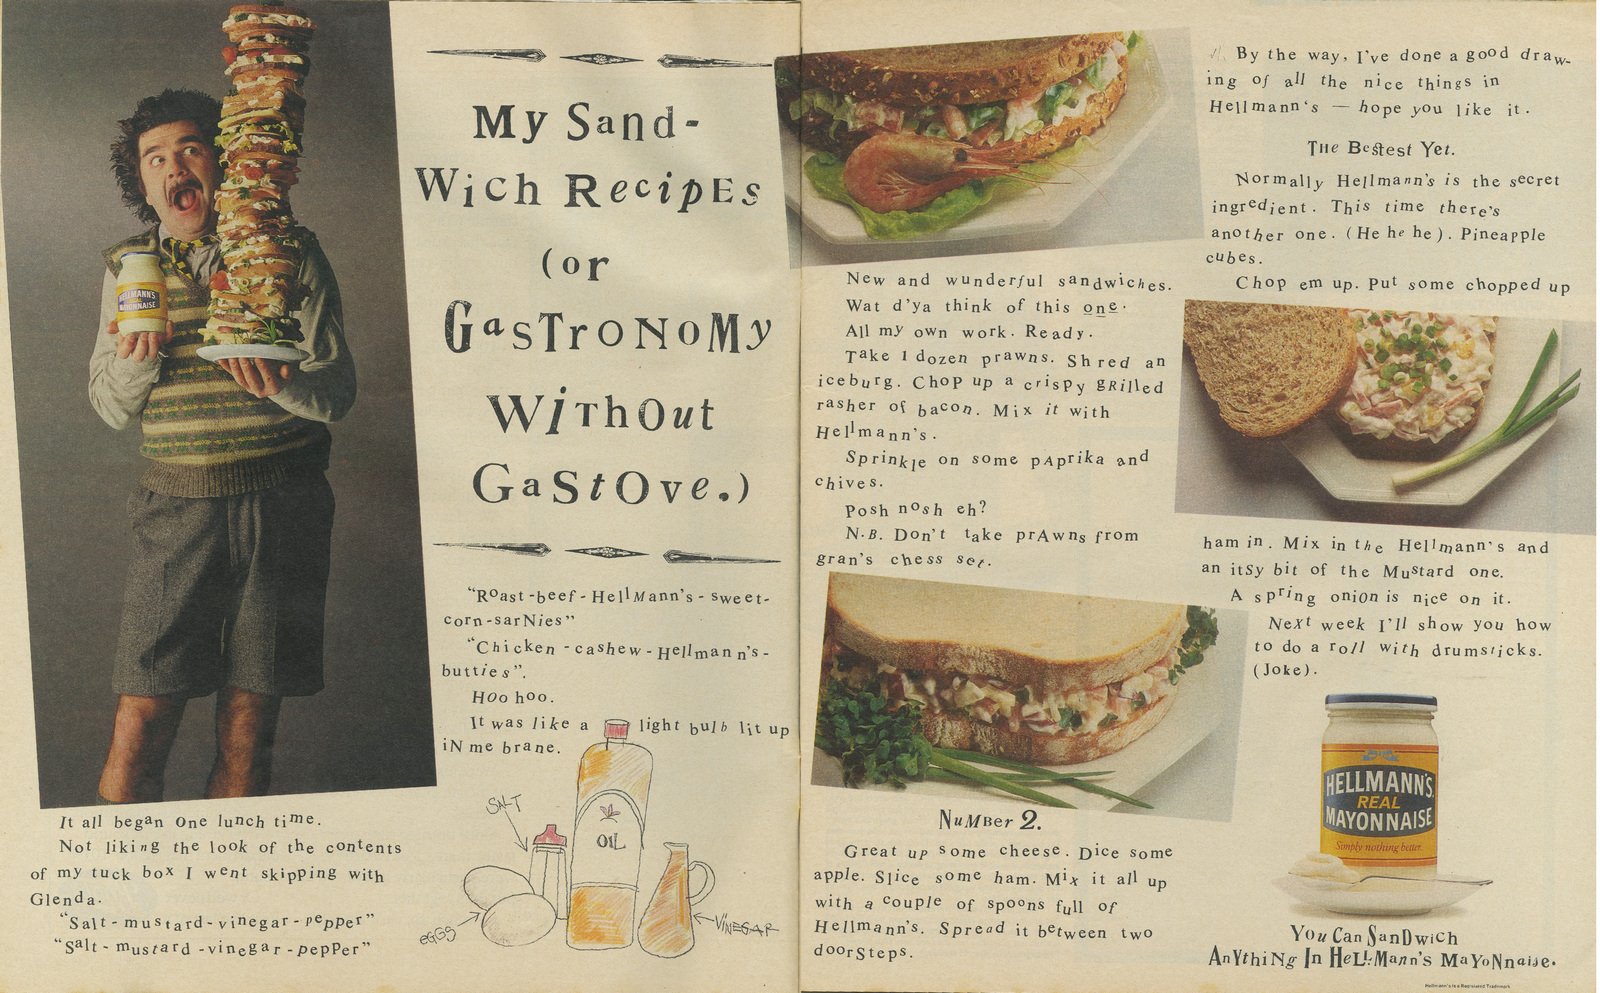 My Sand-
Wich Recipes
(or
Gastronomy
Without
Gastove.)
It all began one lunch time.
Not liking the look of the contents
of my tuck box I went skipping with
Glenda.
"Salt-mustard-vinegar-pepper"
"Salt-mustard-vinegar-pepper"
"Roast-beef-Hellmann's-sweet-
corn-sarnies"
"Chicken-cashew-Hellmann's-
butties".
Hoo hoo.
It was like a light bulb lit up
in me brane.
SALT
OIL
EGGS
VINEGAR
HELLMANN'S
MAYONNAISE
New and wunderful sandwiches.
Wat d'ya think of this one.
All my own work. Ready.
Take 1 dozen prawns. Shred an
iceburg. Chop up a crispy grilled
rasher of bacon. Mix it with
Hellmann's.
Sprinkle on some paprika and
chives.
Posh nosh eh?
N.B. Don't take prawns from
gran's chess set.
Number 2.
Great up some cheese. Dice some
apple. Slice some ham. Mix it all up
with a couple of spoons full of
Hellmann's. Spread it between two
doorsteps.
By the way, I've done a good draw-
ing of all the nice things in
Hellmann's — hope you like it.
The Bestest Yet.
Normally Hellmann's is the secret
ingredient. This time there's
another one. (He he he). Pineapple
cubes.
Chop em up. Put some chopped up
ham in. Mix in the Hellmann's and
an itsy bit of the Mustard one.
A spring onion is nice on it.
Next week I'll show you how
to do a roll with drumsticks.
(Joke).
HELLMANN'S
REAL
MAYONNAISE
Simply nothing better.
You Can Sandwich
Anything In Hellmann's Mayonnaise.
Hellmann's is a Registered Trademark